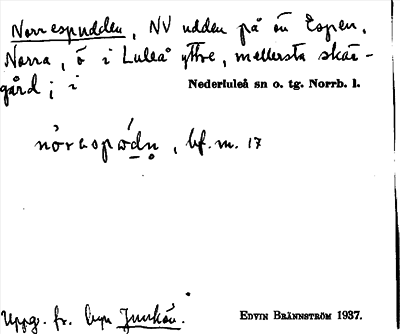 Norrespudden, NV udden på ön Espen,
Norra, ö i Luleå yttre, mellersta skär-
gård; i
Nederluleå sn o. tg. Norrb. l.
, bf. m. 17
Uppg. fr. byn Junkön.
EDVIN BRÄNNSTRÖM 1937.